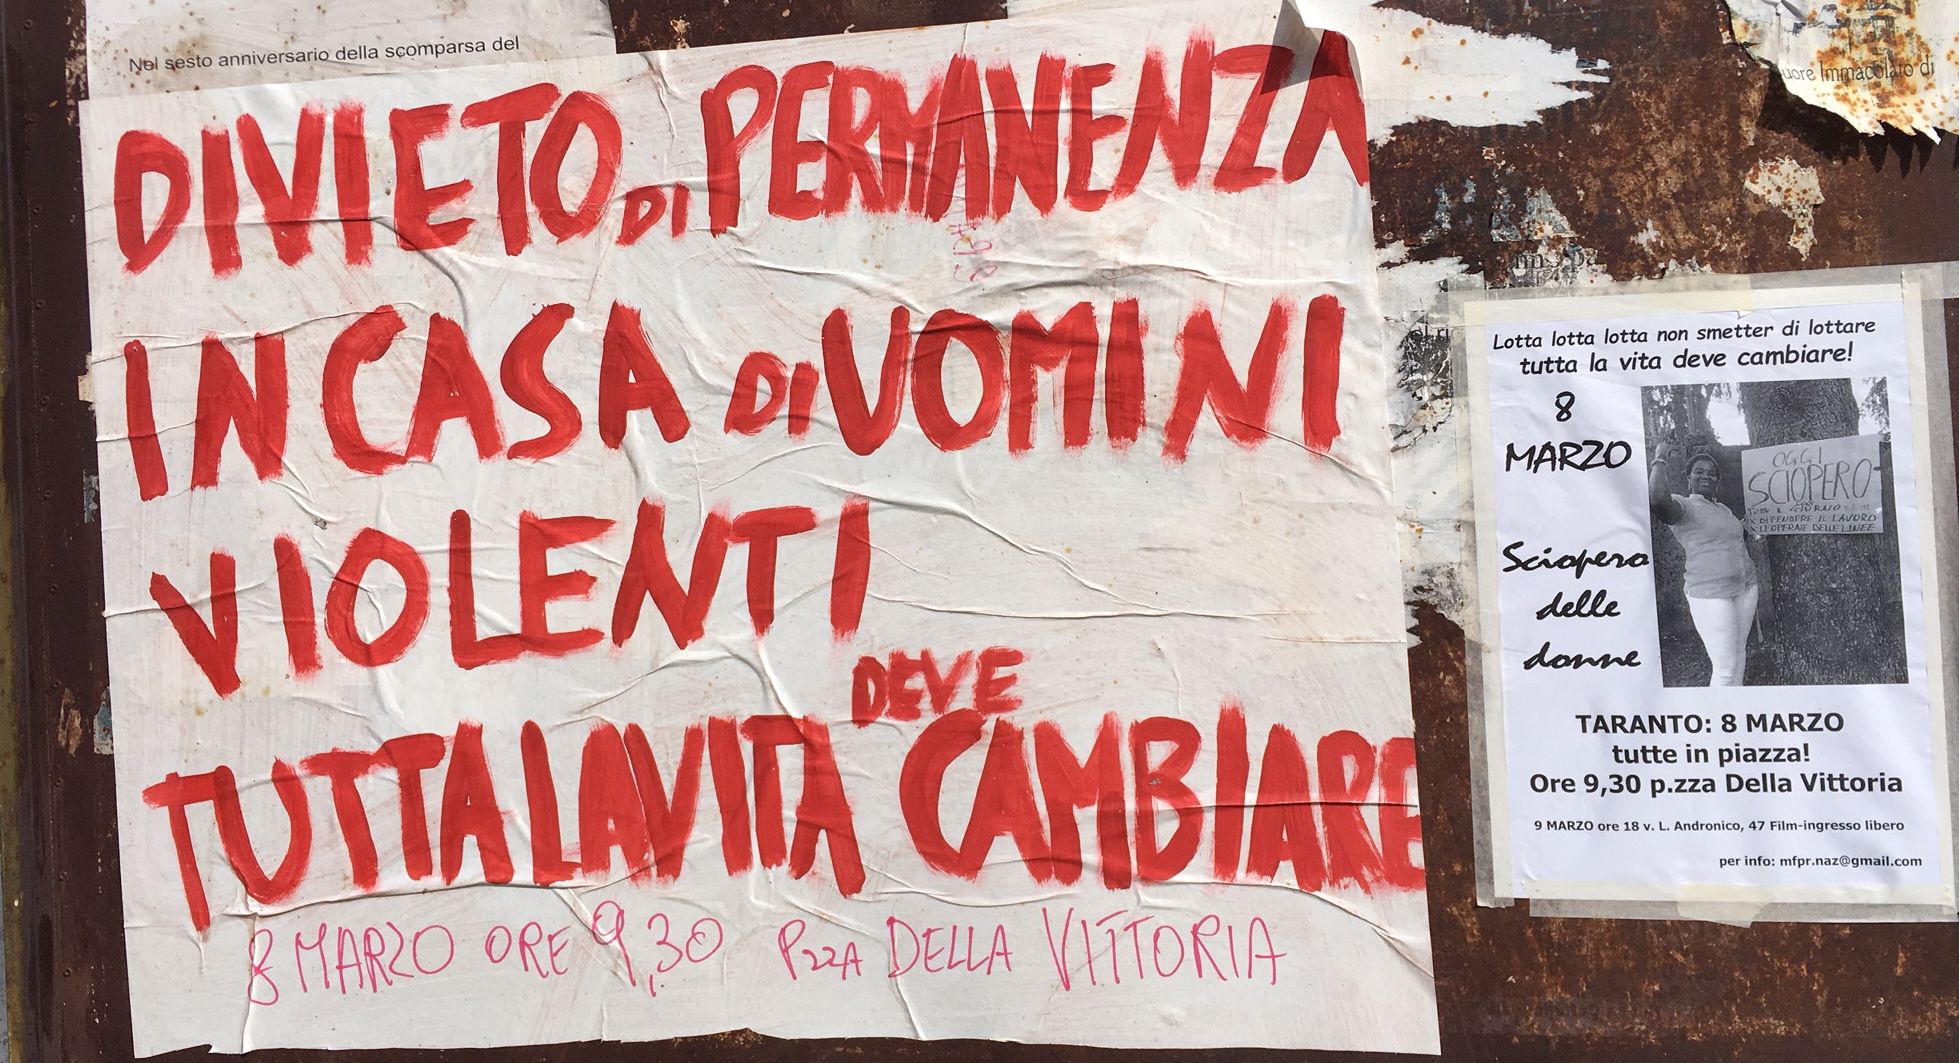 Nel sesto anniversario della scomparsa del
DIVIETO DI PERMANENZA
IN CASA DI UOMINI
VIOLENTI
TUTTA LA VITA DEVE CAMBIARE
8 MARZO ORE 9,30 Pzza DELLA VITTORIA
uore Immacolato di
Lotta lotta lotta non smetter di lottare
tutta la vita deve cambiare!
8
MARZO
Sciopero
delle
donne
OGGI
SCIOPERO
TUTTO IL GIORNO
X DIFENDERE IL LAVORO
X LE OPERAIE DELLE LINEE
TARANTO: 8 MARZO
tutte in piazza!
Ore 9,30 p.zza Della Vittoria
9 MARZO ore 18 v. L. Andronico, 47 Film-ingresso libero
per info: mfpr.naz@gmail.com